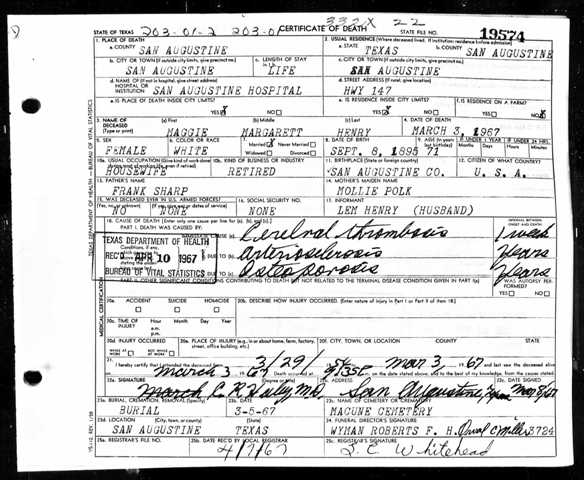 332X 22
STATE OF TEXAS 203-01-2 203-01 CERTIFICATE OF DEATH STATE FILE NO. 19574
1. PLACE OF DEATH
a. COUNTY
SAN AUGUSTINE
2. USUAL RESIDENCE (Where deceased lived. If institution: residence before admission)
a. STATE
TEXAS
b. COUNTY
SAN AUGUSTINE
b. CITY OR TOWN (If outside city limits, give precinct no.)
SAN AUGUSTINE
c. LENGTH OF STAY
LIFE
c. CITY OR TOWN (If outside city limits, give precinct no.)
SAN AUGUSTINE
d. NAME OF (If not in hospital, give street address)
HOSPITAL OR
INSTITUTION
SAN AUGUSTINE HOSPITAL
d. STREET ADDRESS (If rural, give location)
HWY 147
e. IS PLACE OF DEATH INSIDE CITY LIMITS?
YES X NO
e. IS RESIDENCE INSIDE CITY LIMITS?
YES X NO
f. IS RESIDENCE ON A FARM?
YES NO X
3. NAME OF
DECEASED
(Type or print)
(a) First
MAGGIE
(b) Middle
MARGARETT
(c) Last
HENRY
4. DATE OF DEATH
MARCH 3, 1967
5. SEX
FEMALE
6. COLOR OR RACE
WHITE
7. Married X Never Married
Widowed Divorced
8. DATE OF BIRTH
SEPT. 8, 1895
9. AGE (In years last birthday)
71
IF UNDER 1 YEAR
Months Days
IF UNDER 24 HRS.
Hours Min.
10a. USUAL OCCUPATION (Give kind of work done during most of working life, even if retired)
HOUSEWIFE
10b. KIND OF BUSINESS OR INDUSTRY
RETIRED
11. BIRTHPLACE (State or foreign country)
SAN AUGUSTINE CO.
12. CITIZEN OF WHAT COUNTRY?
U. S. A.
13. FATHER'S NAME
FRANK SHARP
14. MOTHER'S MAIDEN NAME
MOLLIE POLK
15. WAS DECEASED EVER IN U.S. ARMED FORCES?
(Yes, no, or unknown) (If yes, give war or dates of service)
NO NONE
16. SOCIAL SECURITY NO.
NONE
17. INFORMANT
LEM HENRY (HUSBAND)
18. CAUSE OF DEATH [Enter only one cause per line for (a), (b), and (c).]
PART I. DEATH WAS CAUSED BY:
IMMEDIATE CAUSE (a) Cerebral thrombosis
INTERVAL BETWEEN
ONSET AND DEATH
1 week
DUE TO (b) Arteriosclerosis Years
DUE TO (c) Osteoporosis Years
TEXAS DEPARTMENT OF HEALTH
REC'D APR 10 1967
BUREAU OF VITAL STATISTICS
PART II. OTHER SIGNIFICANT CONDITIONS CONTRIBUTING TO DEATH BUT NOT RELATED TO THE TERMINAL DISEASE CONDITION GIVEN IN PART I(a)
19. WAS AUTOPSY PERFORMED?
YES NO
20a. ACCIDENT SUICIDE HOMICIDE
20b. DESCRIBE HOW INJURY OCCURRED. (Enter nature of injury in Part I or Part II of item 18.)
20c. TIME OF
INJURY
Hour Month Day Year
a.m.
p.m.
20d. INJURY OCCURRED
WHILE AT WORK NOT WHILE AT WORK
20e. PLACE OF INJURY (e.g., in or about home, farm, factory, street, office building, etc.)
20f. CITY, TOWN, OR LOCATION COUNTY STATE
21. I hereby certify that I attended the deceased from 3/29/ to Mar 3 1967 and last saw the deceased alive
on March 3 1967 Death occurred at m. on the date stated above, and to the best of my knowledge, from the causes stated.
22a. SIGNATURE
22b. ADDRESS
San Augustine, Texas
22c. DATE SIGNED
Mar 8/67
23a. BURIAL, CREMATION, REMOVAL (Specify)
BURIAL
23b. DATE
3-5-67
23c. NAME OF CEMETERY OR CREMATORY
MACUNE CEMETERY
23d. LOCATION (City, town, or county) (State)
SAN AUGUSTINE TEXAS
24. FUNERAL DIRECTOR'S SIGNATURE
WYMAN ROBERTS F. H. Orval C Miller 3724
25a. REGISTRAR'S FILE NO.
25b. DATE REC'D BY LOCAL REGISTRAR
4/7/67
25c. REGISTRAR'S SIGNATURE
S. C. Whitehead
TEXAS DEPARTMENT OF HEALTH — BUREAU OF VITAL STATISTICS
MEDICAL CERTIFICATION